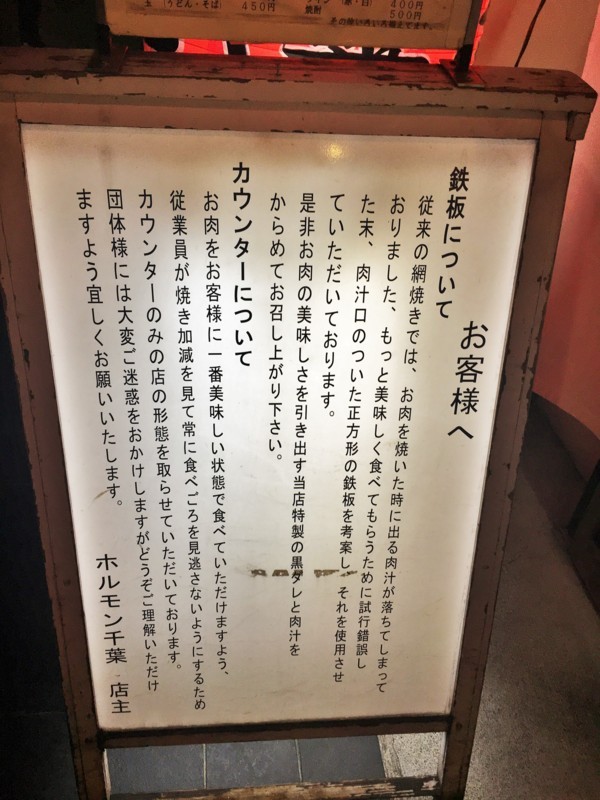 玉(うどん・そば) 450円
400円
焼酎 500円
その他いろいろ揃えてます。
お客様へ
鉄板について
従来の網焼きでは、お肉を焼いた時に出る肉汁が落ちてしまって
おりました、もっと美味しく食べてもらうために試行錯誤し
た末、肉汁口のついた正方形の鉄板を考案し、それを使用させ
ていただいております。
是非お肉の美味しさを引き出す当店特製の黒ダレと肉汁を
からめてお召し上がり下さい。
カウンターについて
お肉をお客様に一番美味しい状態で食べていただけますよう、
従業員が焼き加減を見て常に食べごろを見逃さないようにするため
カウンターのみの店の形態を取らせていただいております。
団体様には大変ご迷惑をおかけしますがどうぞご理解いただけ
ますよう宜しくお願いいたします。
ホルモン千葉 店主